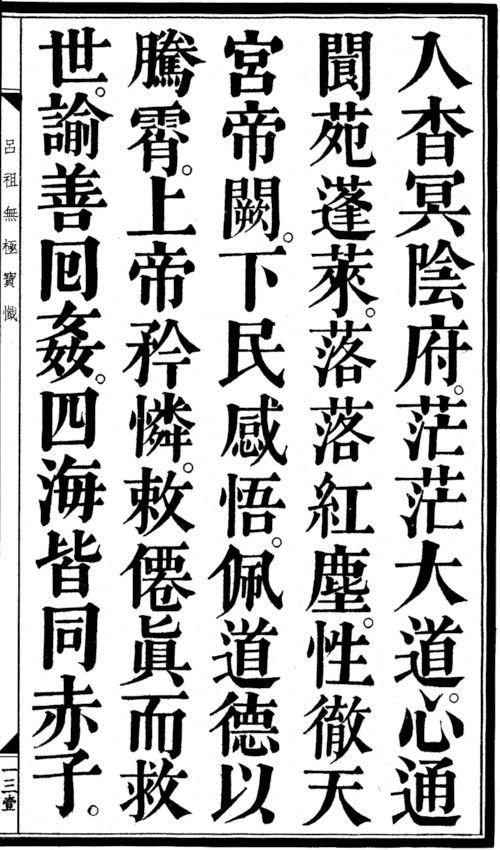 入杳冥陰府。茫茫大道。心通
閬苑蓬萊。落落紅塵。性徹天
宮帝闕。下民感悟。佩道德以
騰霄。上帝矜憐。敕僊眞而救
世。諭善回姦。四海皆同赤子。
呂祖無極寶懺
一三壹